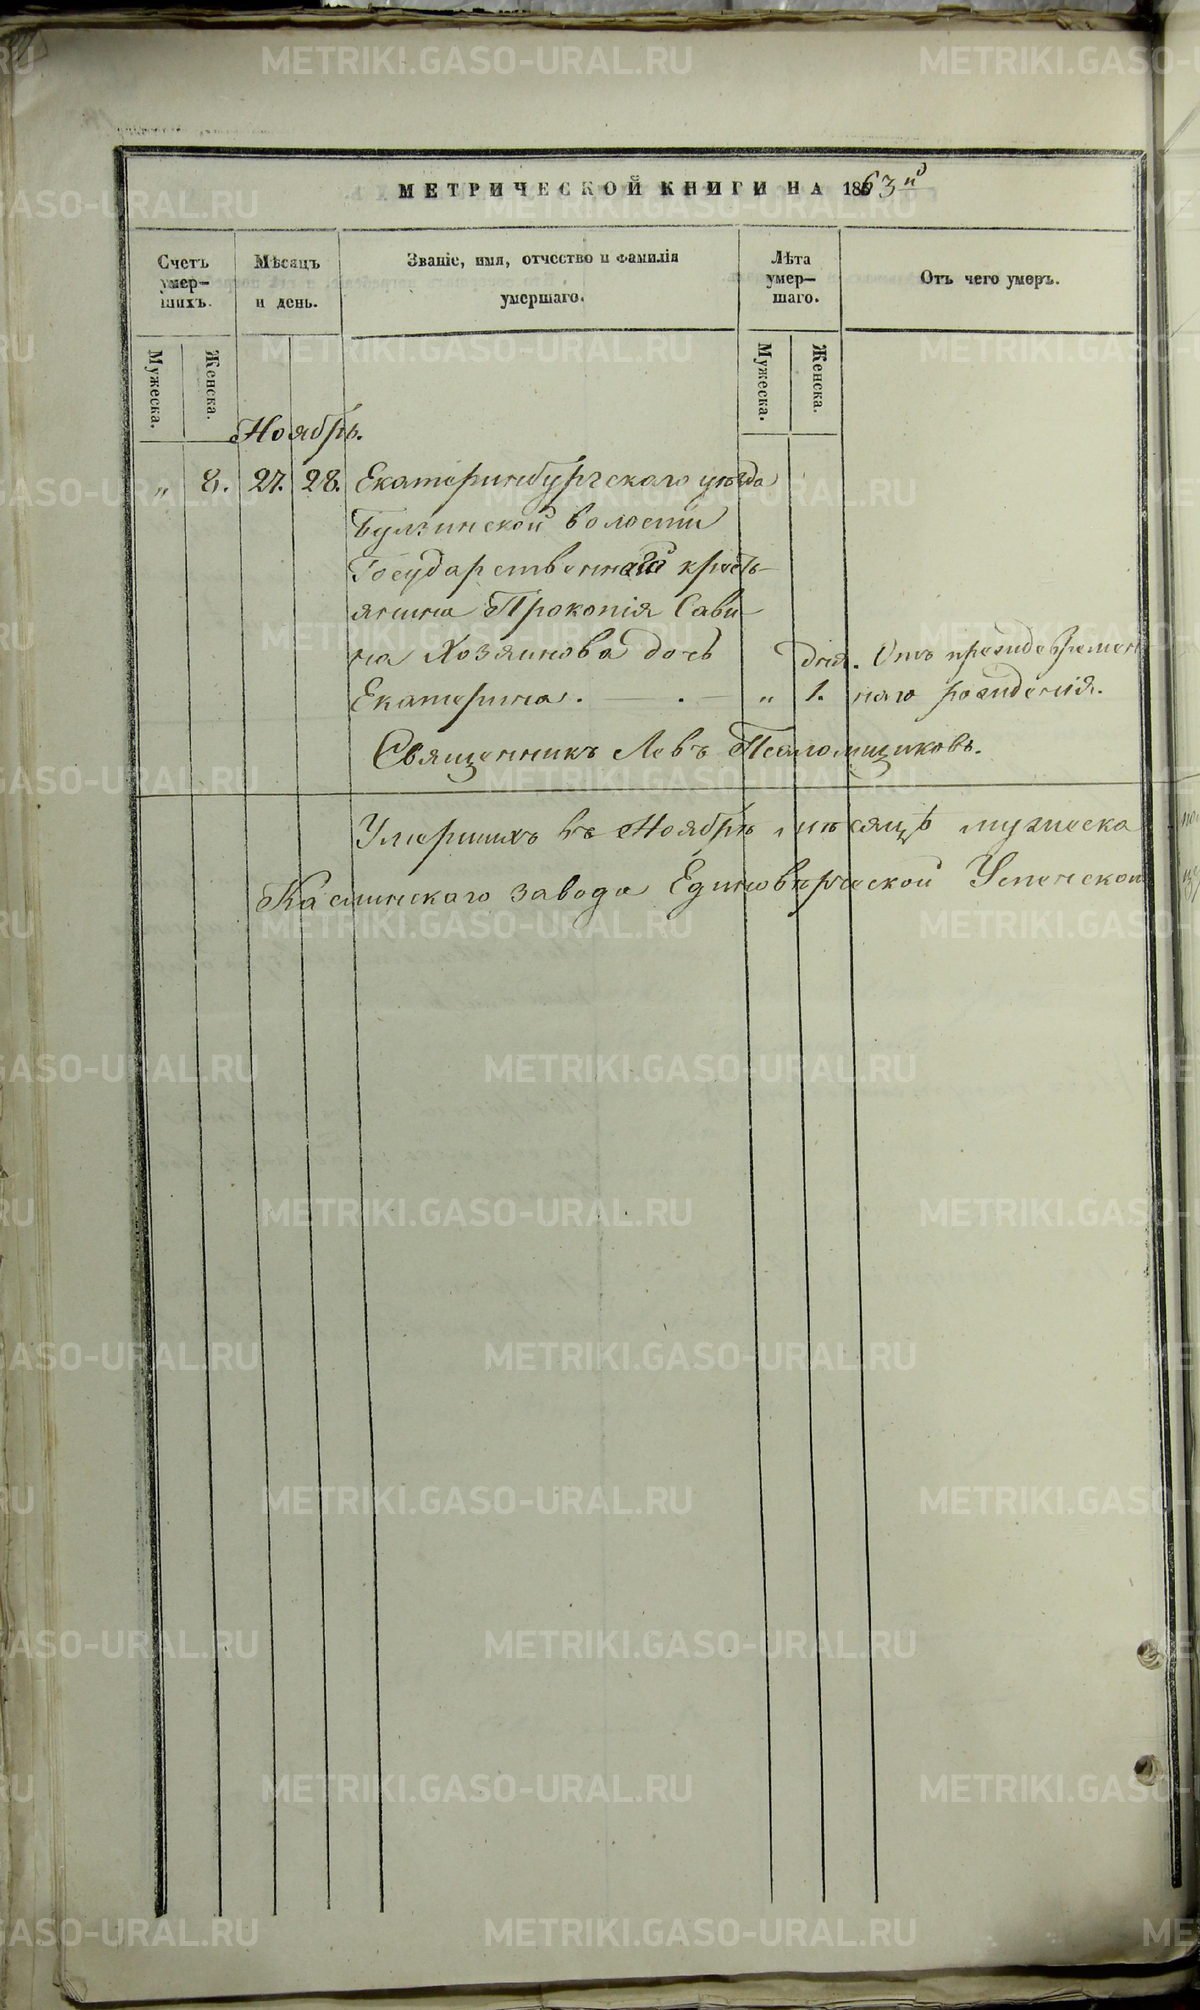 МЕТРИЧЕСКОЙ КНИГИ НА 1863й
Счетъ умер-шихъ.
Мѣсяцъ и день.
Званіе, имя, отчество и фамилія умершаго.
Лѣта умер-шаго.
Отъ чего умеръ.
Мужеска.
Женска.
Мужеска.
Женска.
Ноябрь.
„ 8. 27. 28. Екатеринбургскаго уѣзда
Булзинской волости
Государственнаго кресть-
янина Прокопія Сави-
на Хозяинова дочь дня. Отъ преждевремен
Екатерина. . — „ 1. наго рожденія.
Священникъ Левъ Псаломщиковъ.
Умершихъ въ Ноябрѣ мѣсяцѣ мужеска
Каслинскаго завода Единовѣрческой Успенской
METRIKI.GASO-URAL.RU